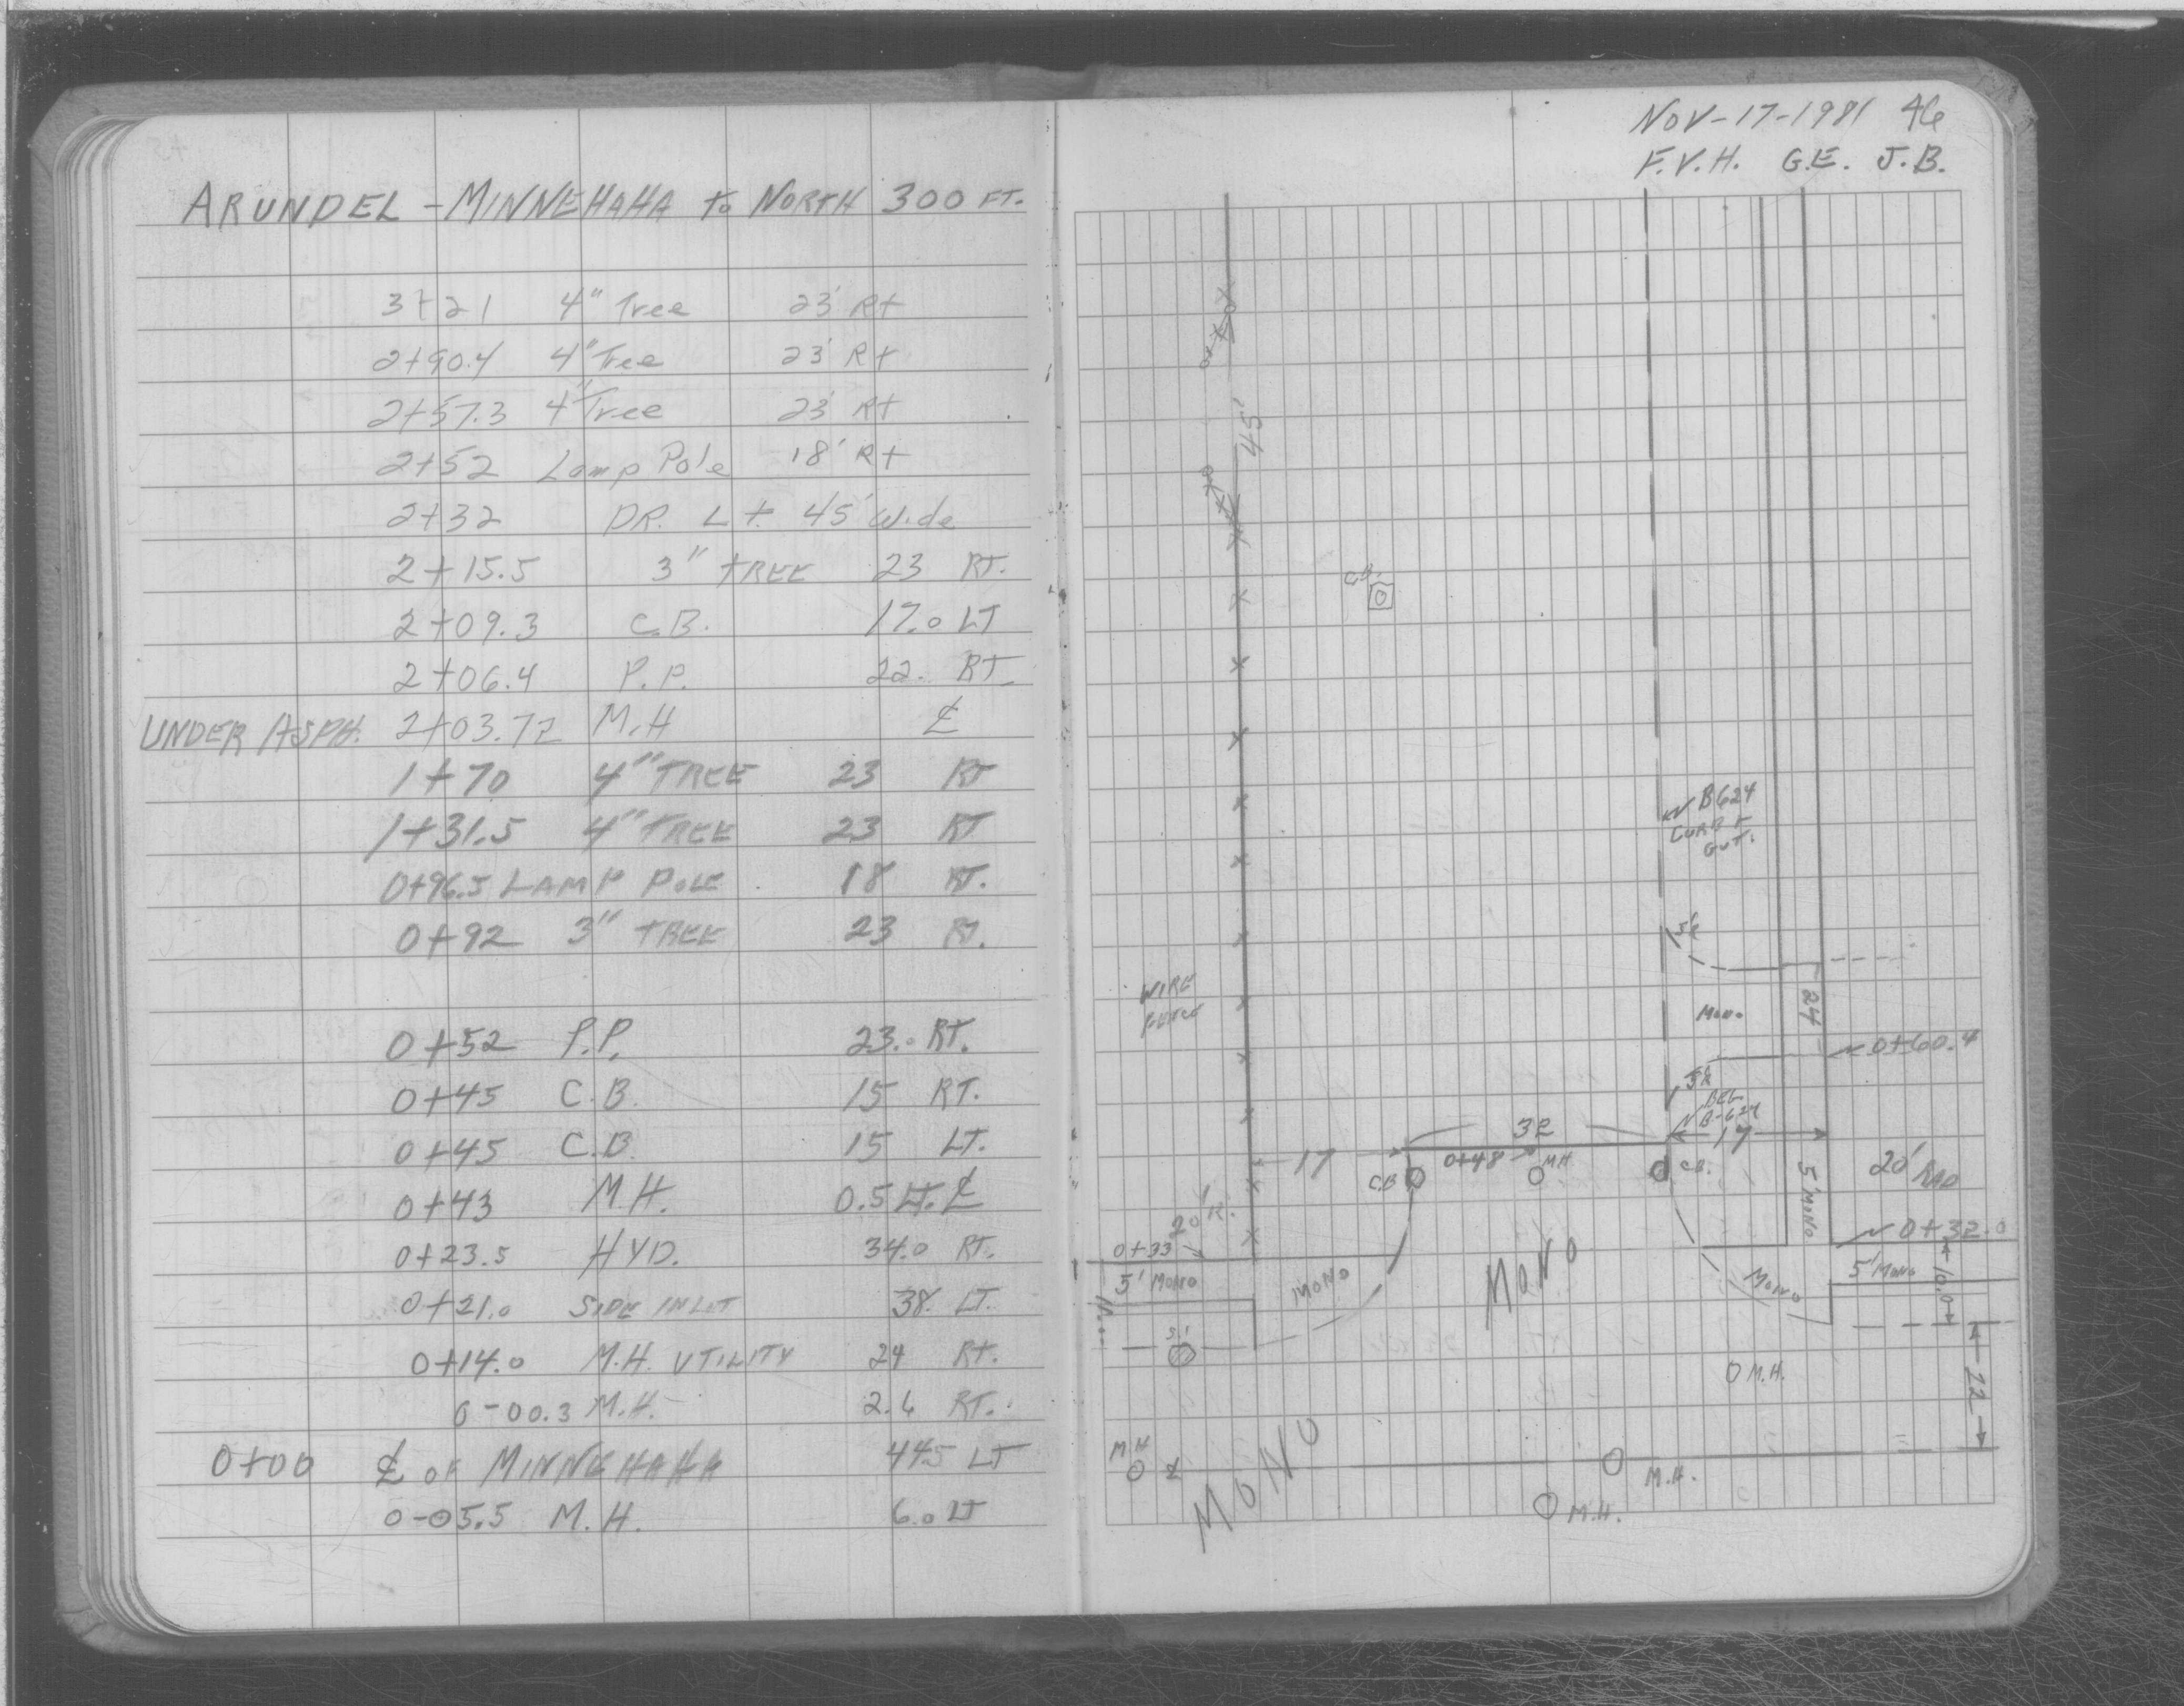 ARUNDEL - MINNEHAHA to NORTH 300 FT.
3+21 4" Tree 23' Rt
2+90.4 4" Tree 23' Rt
2+57.3 4" Tree 23' Rt
2+52 Lamp Pole 18' Rt
2+32 DR. Lt. 45' Wide
2+15.5 3" TREE 23 RT.
2+09.3 C.B. 17.0 LT
2+06.4 P.P. 22. RT.
UNDER ASPH. 2+03.72 M.H ℄
1+70 4" TREE 23 RT
1+31.5 4" TREE 23 RT
0+96.5 LAMP POLE 18 RT.
0+92 3" TREE 23 RT.
0+52 P.P. 23.0 RT.
0+45 C.B. 15 RT.
0+45 C.B. 15 LT.
0+43 M.H. 0.5 LT. ℄
0+23.5 HYD. 34.0 RT.
0+21.0 SIDE INLET 38. LT.
0+14.0 M.H. UTILITY 24 RT.
0-00.3 M.H. 2.6 RT.
0+00 ℄ OF MINNEHAHA 445 LT
0-05.5 M.H. 6.0 LT
NOV-17-1981 46
F.V.H. G.E. J.B.
45'
C.B.
B624
CURB &
GUT.
5'R
WIRE
FENCE
MONO
24
0+60.4
5'R
BEG.
B-624
32
17
17
0+48
M.H
C.B
C.B.
5' MONO
20' RAD
20' R.
0+33
0+32.0
5' MONO
MONO
MONO
MONO
5' MONO
10.0
S.I
M.H.
22
M.H
℄
MONO
M.H.
M.H.